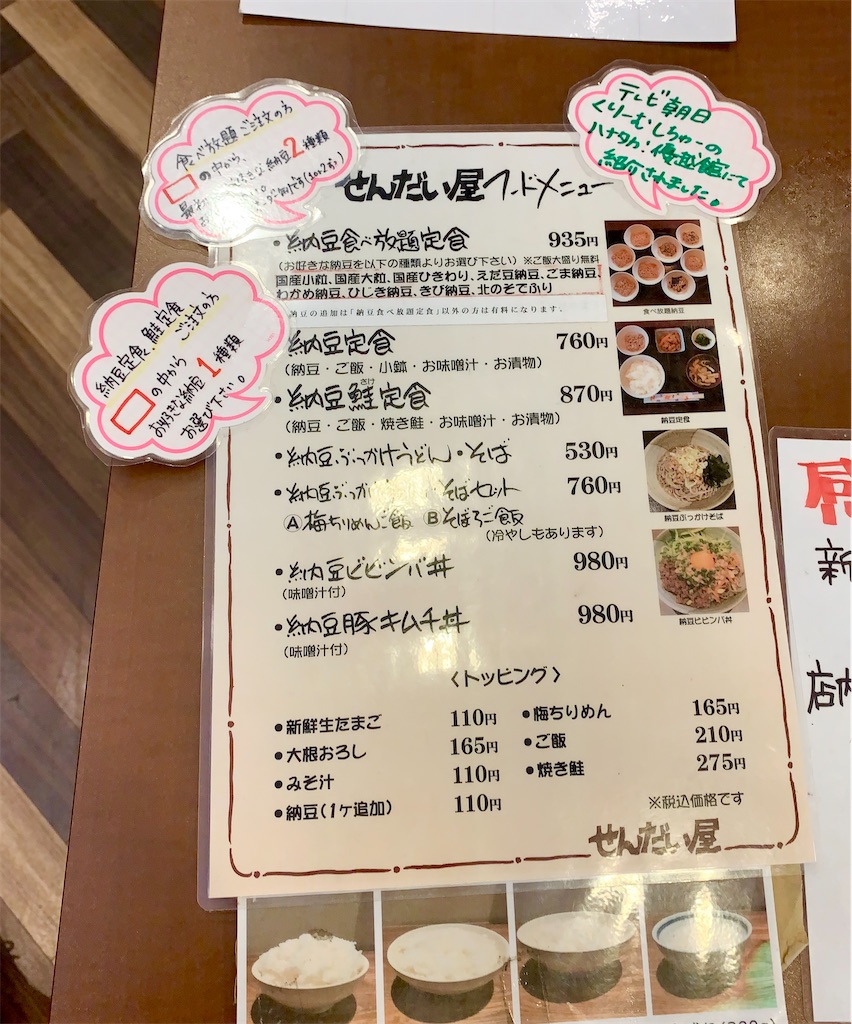 食べ放題ご注文の方
の中から、
納豆2種類
テレビ朝日
くりーむしちゅーの
ハナタカ!優越館にて
紹介されました。
納豆定食、鮭定食
ご注文の方
の中から
お好きな納豆1種類
お選び下さい。
せんだい屋フードメニュー
・納豆食べ放題定食 935円
(お好きな納豆を以下の種類よりお選び下さい) ※ご飯大盛り無料
国産小粒、国産大粒、国産ひきわり、えだ豆納豆、ごま納豆、
わかめ納豆、ひじき納豆、きび納豆、北のそてふり
納豆の追加は「納豆食べ放題定食」以外の方は有料になります。
食べ放題納豆
納豆定食 760円
(納豆・ご飯・小鉢・お味噌汁・お漬物)
・納豆鮭定食 870円
さけ
(納豆・ご飯・焼き鮭・お味噌汁・お漬物)
納豆定食
・納豆ぶっかけうどん・そば 530円
・納豆ぶっかけ そばセット 760円
Ⓐ梅ちりめんご飯 Ⓑそぼろご飯
(冷やしもあります)
納豆ぶっかけそば
・納豆ビビンバ丼 980円
(味噌汁付)
・納豆豚キムチ丼 980円
(味噌汁付)
納豆ビビンバ丼
〈トッピング〉
●新鮮生たまご 110円
●大根おろし 165円
●みそ汁 110円
●納豆(1ケ追加) 110円
●梅ちりめん 165円
●ご飯 210円
●焼き鮭 275円
※税込価格です
せんだい屋
新
店内